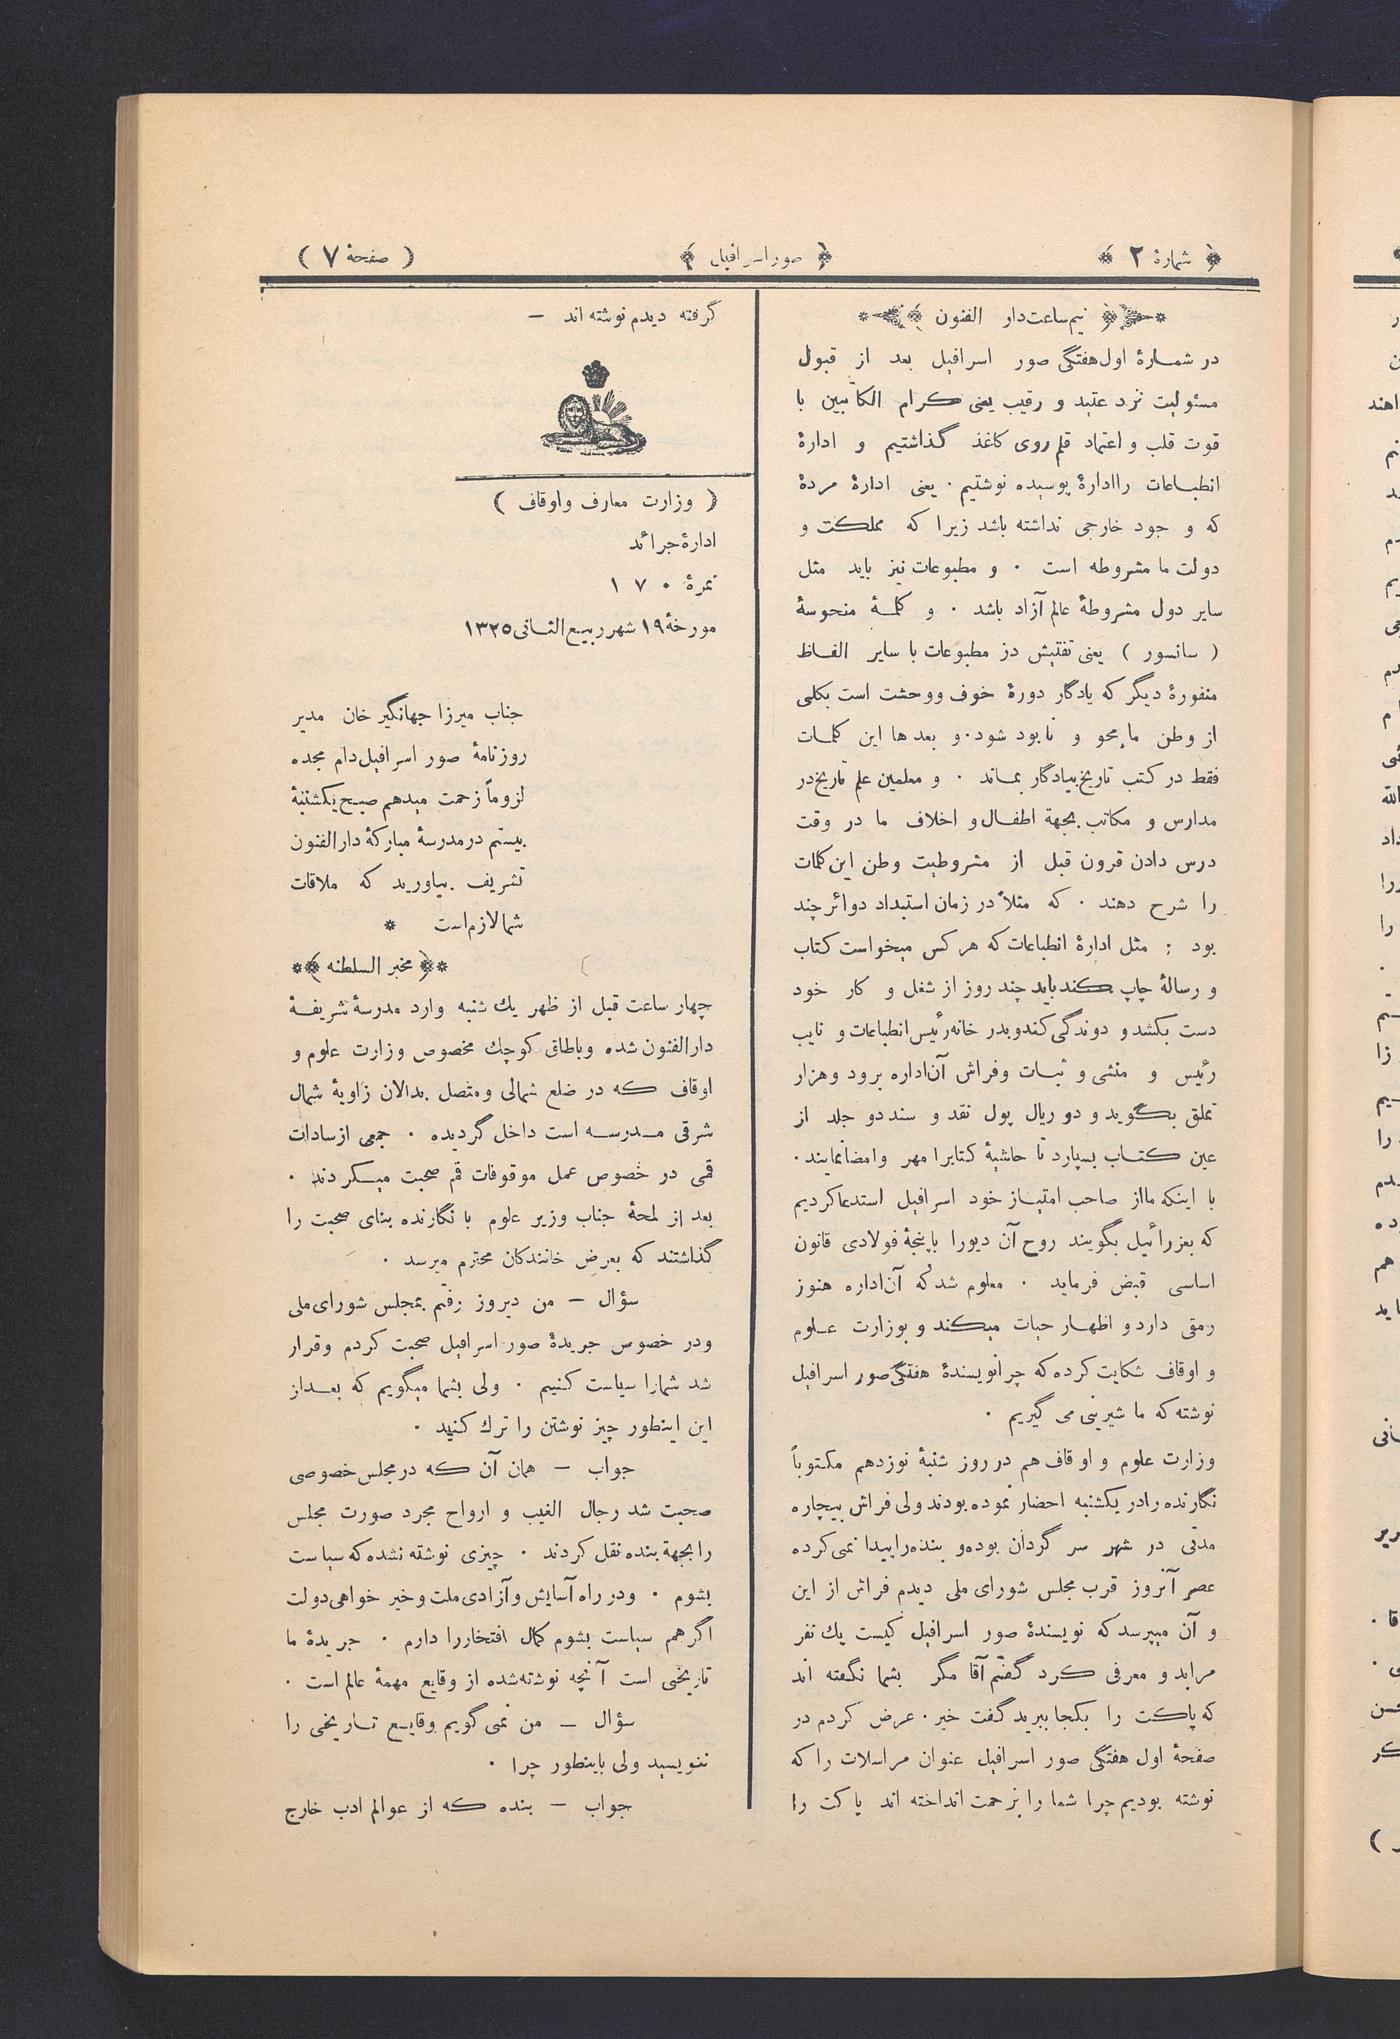 شمارهٔ ۲
صور اسرافیل
( صفحهٔ ۷ )
نیم‌ساعت دار الفنون
در شمارهٔ اول هفتگی صور اسرافیل بعد از قبول
مسئولیت نزد عتید و رقیب یعنی کرام الکاتبین با
قوت قلب و اعتماد قلم روی کاغذ گذاشتیم و ادارهٔ
انطباعات را ادارهٔ پوسیده نوشتیم . یعنی ادارهٔ مردهٔ
که و جود خارجی نداشته باشد زیرا که مملکت و
دولت ما مشروطه است . و مطبوعات نیز باید مثل
سایر دول مشروطهٔ عالم آزاد باشد . و کلمهٔ منحوسهٔ
( سانسور ) یعنی تفتیش در مطبوعات با سایر الفاظ
منفورهٔ دیگر که یادگار دورهٔ خوف و وحشت است بکلی
از وطن ما محو و نابود شود . و بعد ها این کلمات
فقط در کتب تاریخ بیادگار بماند . و معلمین علم تاریخ در
مدارس و مکاتب بجهة اطفال و اخلاف ما در وقت
درس دادن قرون قبل از مشروطیت وطن این کلمات
را شرح دهند . که مثلاً در زمان استبداد دوائر چند
بود : مثل ادارهٔ انطباعات که هر کس میخواست کتاب
و رسالهٔ چاپ کند باید چند روز از شغل و کار خود
دست بکشد و دوندگی کند و بدر خانه رئیس انطباعات و نایب
رئیس و منشی و ثبات و فراش آن اداره برود و هزار
تملق بگوید و دو ریال پول نقد و سند دو جلد از
عین کتاب بسپارد تا حاشیهٔ کتابرا مهر و امضا نمایند .
با اینکه ما از صاحب امتیاز خود اسرافیل استدعا کردیم
که بعزرائیل بگویند روح آن دیورا با پنجهٔ فولادی قانون
اساسی قبض فرماید . معلوم شد که آن اداره هنوز
رمقی دارد و اظهار حیات میکند و بوزارت علوم
و اوقاف شکایت کرده که چرا نویسندهٔ هفتگی صور اسرافیل
نوشته که ما شیرینی می گیریم .
وزارت علوم و اوقاف هم در روز شنبهٔ نوزدهم مکتوباً
نگارنده را در یکشنبه احضار نموده بودند ولی فراش بیچاره
مدتی در شهر سر گردان بوده و بنده را پیدا نمی کرده
عصر آنروز قرب مجلس شورای ملی دیدم فراش از این
و آن میپرسد که نویسندهٔ صور اسرافیل کیست یك نفر
مرا دید و معرفی کرد گفتم آقا مگر بشما نگفته اند
که پاکت را بکجا ببرید گفت خیر . عرض کردم در
صفحهٔ اول هفتگی صور اسرافیل عنوان مراسلات را که
نوشته بودیم چرا شما را بزحمت انداخته اند پاکت را
گرفته دیدم نوشته اند —
( وزارت معارف و اوقاف )
ادارهٔ جرائد
نمرهٔ ۱۷۰
مورخهٔ ۱۹ شهر ربیع الثانی ۱۳۲۵
جناب میرزا جهانگیر خان مدیر
روزنامهٔ صور اسرافیل دام مجده
لزوماً زحمت میدهم صبح یکشنبهٔ
بیستم در مدرسهٔ مبارکهٔ دارالفنون
تشریف بیاورید که ملاقات
شما لازم است *
مخبر السلطنه
چهار ساعت قبل از ظهر یك شنبه وارد مدرسهٔ شریفهٔ
دارالفنون شده و باطاق کوچك مخصوص وزارت علوم و
اوقاف که در ضلع شمالی و متصل بدالان زاویهٔ شمال
شرقی مدرسه است داخل گردیده . جمعی از سادات
قمی در خصوص عمل موقوفات قم صحبت میکردند .
بعد از لمحهٔ جناب وزیر علوم با نگارنده بنای صحبت را
گذاشتند که بعرض خانندکان محترم میرسد .
سؤال — من دیروز رفتم بمجلس شورای ملی
ودر خصوص جریدهٔ صور اسرافیل صحبت کردم و قرار
شد شمارا سیاست کنیم . ولی بشما میگویم که بعد از
این اینطور چیز نوشتن را ترك کنید .
جواب — همان آن که در مجلس خصوصی
صحبت شد رجال الغیب و ارواح مجرد صورت مجلس
را بجهة بنده نقل کردند . چیزی نوشته نشده که سیاست
بشوم . ودر راه آسایش و آزادی ملت و خیر خواهی دولت
اگر هم سیاست بشوم کمال افتخاررا دارم . جریدهٔ ما
تاریخی است آنچه نوشته شده از وقایع مهمهٔ عالم است .
سؤال — من نمی گویم وقایع تاریخی را
ننویسید ولی باینطور چرا .
جواب — بنده که از عوالم ادب خارج